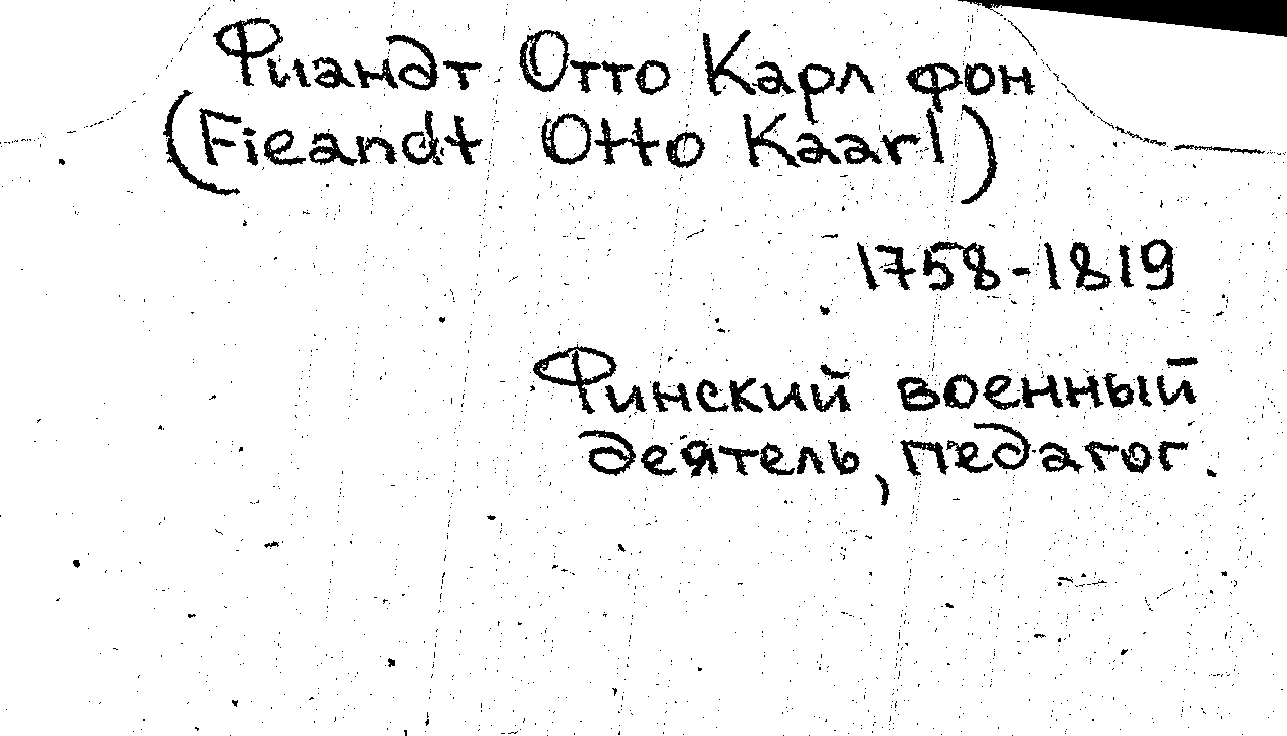 Фиандт Отто Карл фон
(Fieandt Otto Kaarl)
1758-1819
Финский военный
деятель, педагог.